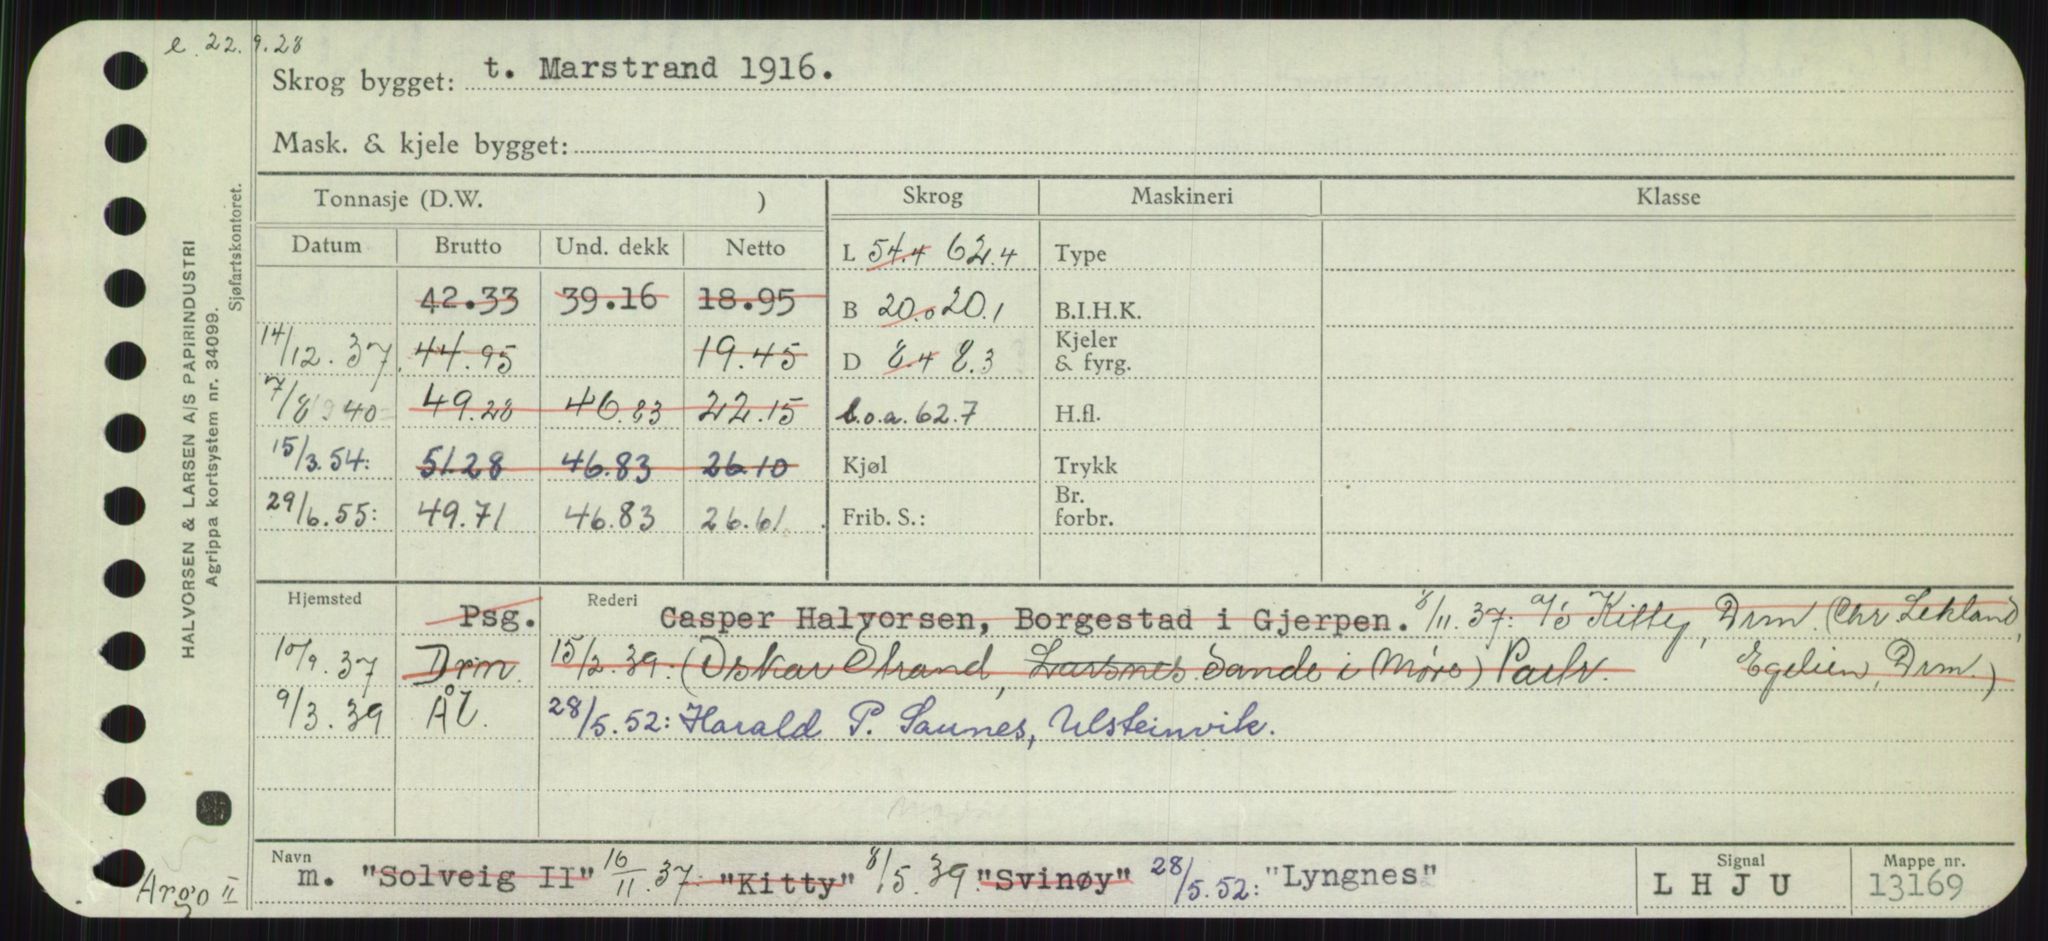 e. 22.9.28
Skrog bygget: t. Marstrand 1916.
Mask. & kjele bygget:
HALVORSEN & LARSEN A/S PAPIRINDUSTRI
Agrippa kortsystem nr. 34099.
Sjøfartskontoret.
Tonnasje (D.W. ) Skrog Maskineri Klasse
Datum Brutto Und. dekk Netto L 54.4 62.4 Type
42.33 39.16 18.95 B 20.0 20.1 B.I.H.K.
14/12.37 44.95 19.45 D 8.4 8.3 Kjeler & fyrg.
7/8 40 49.28 46.83 22.15 l.o.a. 62.7 H.fl.
15/3.54: 51.28 46.83 26.10 Kjøl Trykk
29/6.55: 49.71 46.83 26.61 Frib. S.: Br. forbr.
Hjemsted Psg. Rederi Casper Halvorsen, Borgestad i Gjerpen. 8/11.37: a/s Kitty, Drm. (Chr. Lekland,
10/9.37 Drm. 15/2.39: (Oskar Strand, Larsnes Sande i Møre) Partr. Egelien, Drm.)
9/3.39 Ål. 28/5.52: Harald P. Saunes, Ulsteinvik.
Navn m. "Solveig II" 16/11.37: "Kitty" 8/5.39 "Svinøy" 28/5.52: "Lyngnes" Signal LHJU Mappe nr. 13169
Argo II